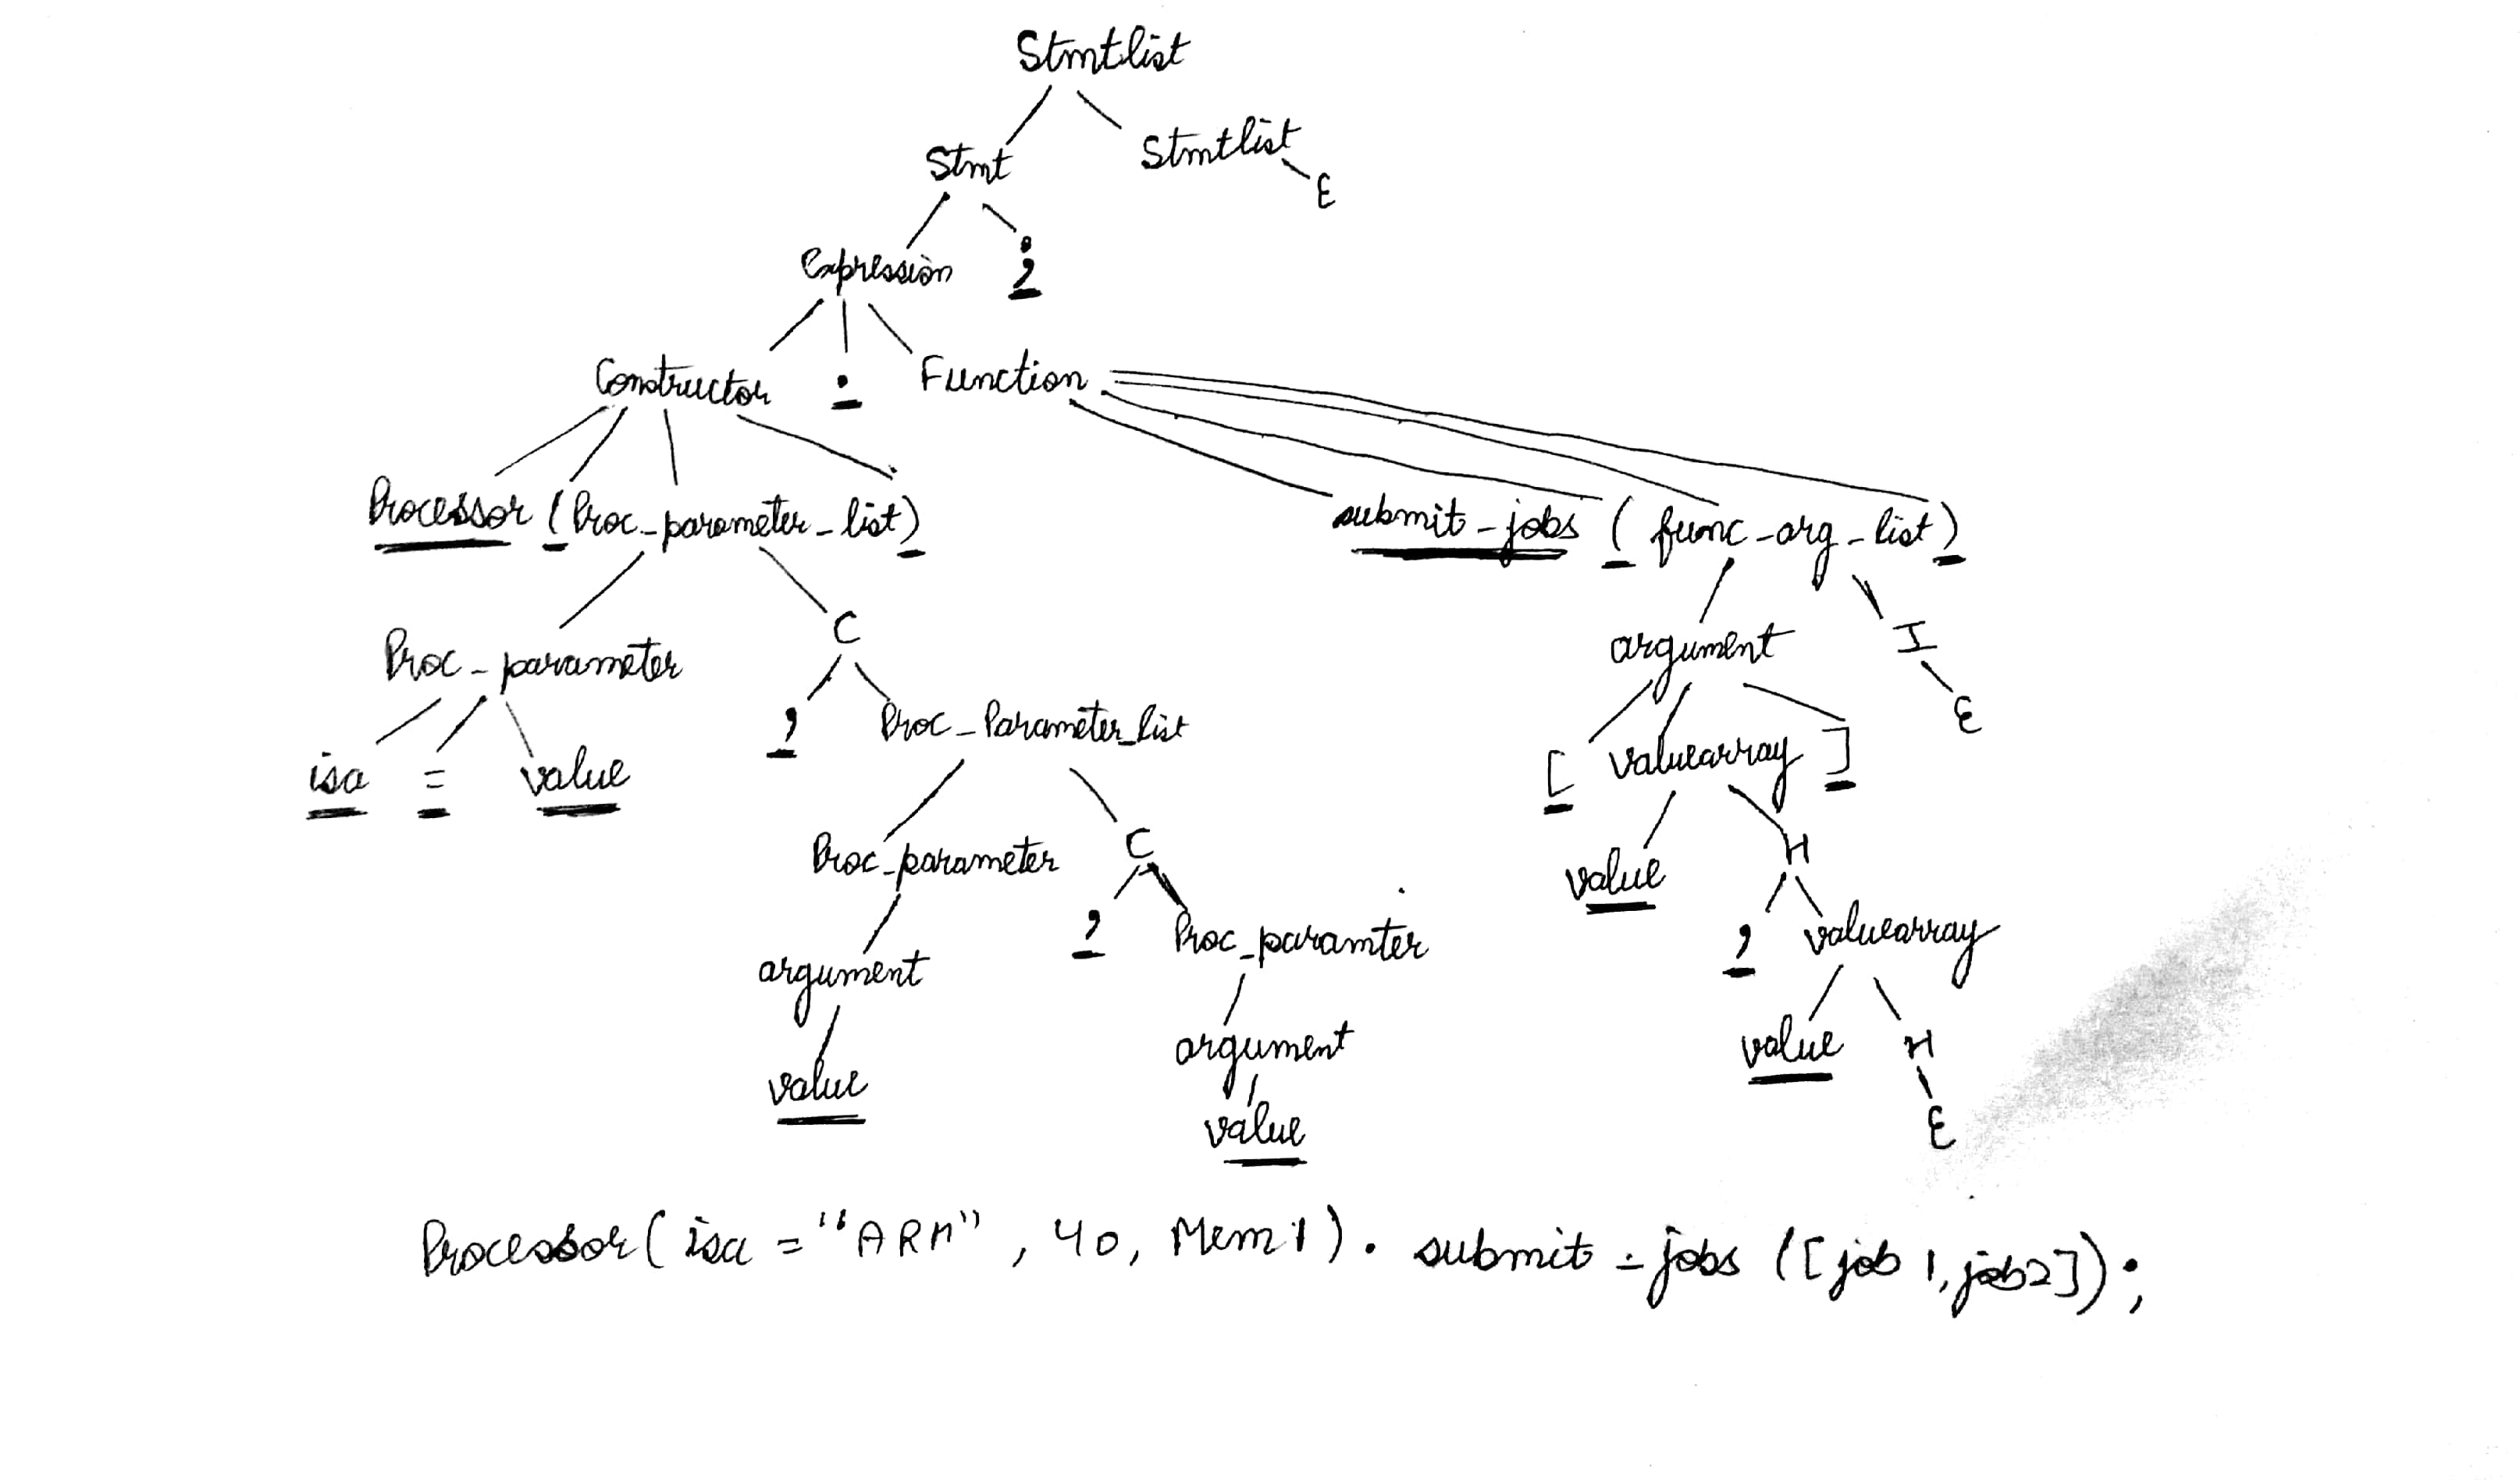 Stmtlist
Stmt Stmtlist
ε
Expression ;
Constructor . Function
Processor ( Proc_parameter_list ) submit_jobs ( func_arg_list )
Proc_parameter C argument I
isa = value , Proc_Parameter_list [ valuearray ] ε
Proc_parameter C value H
argument , Proc_paramter , valuearray
value argument value H
value ε
Processor ( isa = "ARM" , 40, Mem1 ) . submit_jobs ([job 1, job2]) ;